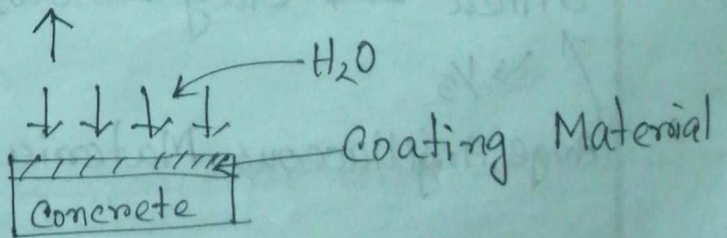 H₂O
Coating Material
Concrete